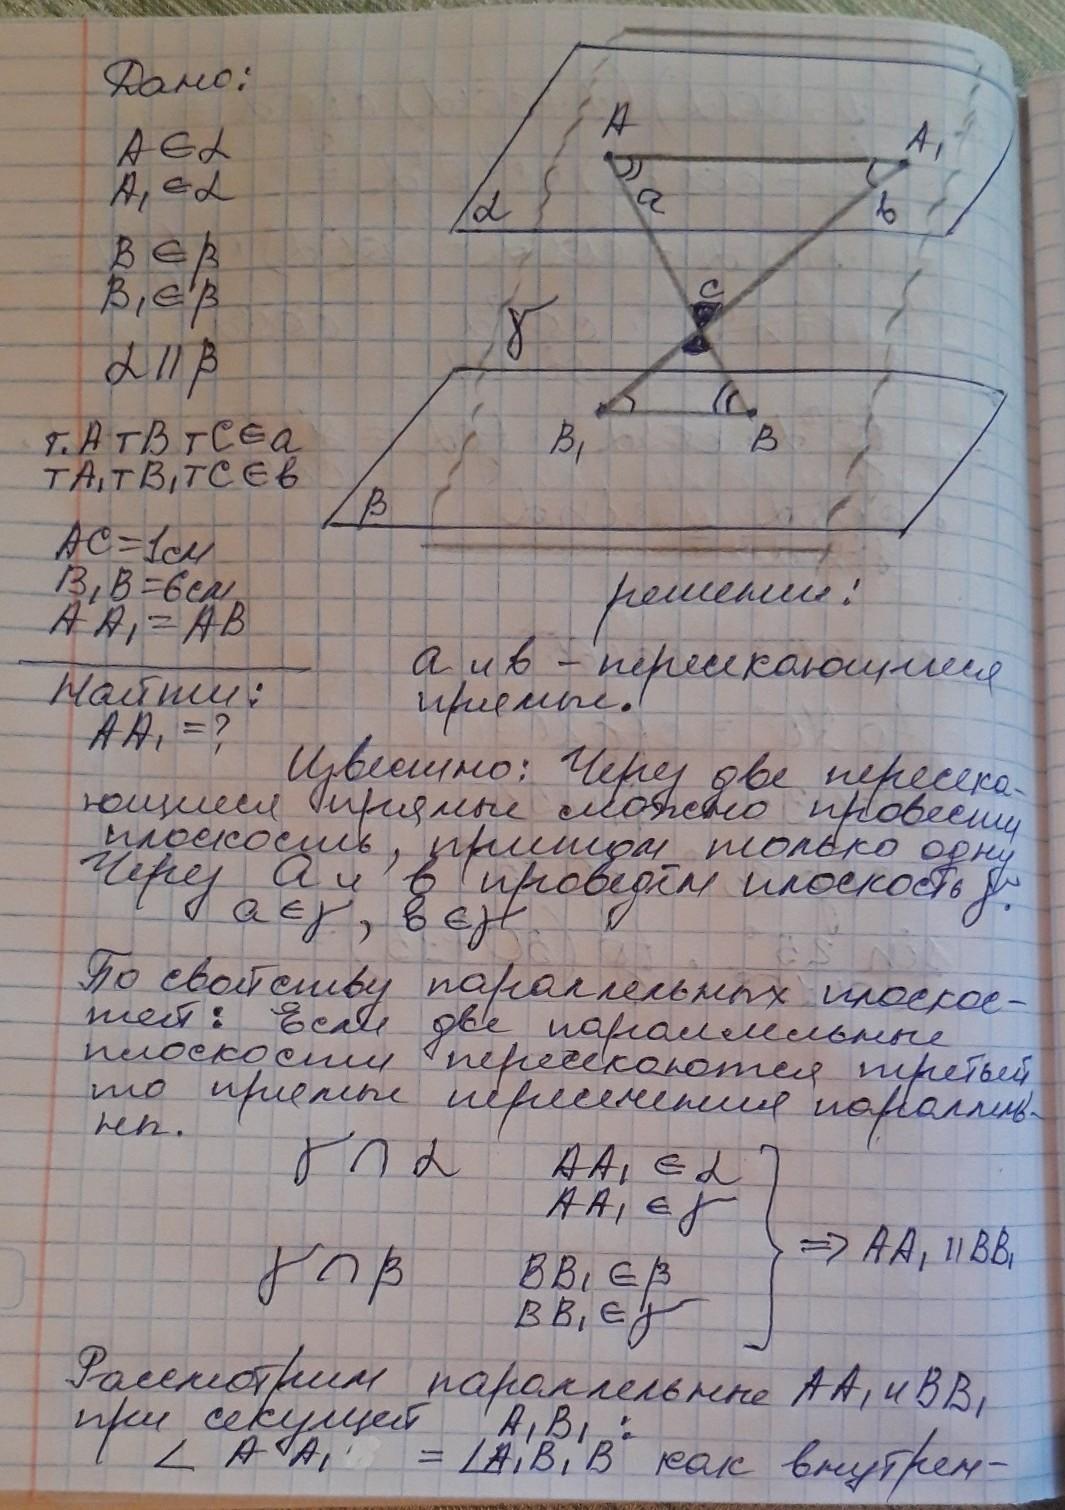 Дано:
A ∈ α
A₁ ∈ α
B ∈ β
B₁ ∈ β
α || β
т.A тB тC ∈ a
тA₁ тB₁ тC ∈ в
AC = 1см
B₁B = 6см
AA₁ = AB
Найти:
AA₁ = ?
A
A₁
a
в
α
C
γ
B₁
B
β
решение:
a и в – пересекающиеся
прямые.
Известно: Через две пересека-
ющиеся прямые можно провести
плоскость, притом только одну
Через a и в проведём плоскость γ.
a ∈ γ, в ∈ γ
По свойству параллельных плоскос-
тей: Если две параллельные
плоскости пересекаются третьей
то прямые пересечения параллель-
ны.
γ ∩ α AA₁ ∈ α
AA₁ ∈ γ
=> AA₁ || BB₁
γ ∩ β BB₁ ∈ β
BB₁ ∈ γ
Рассмотрим параллельные AA₁ и BB₁
при секущей A₁B₁:
∠ A A₁ = ∠A₁B₁B как внутрен-